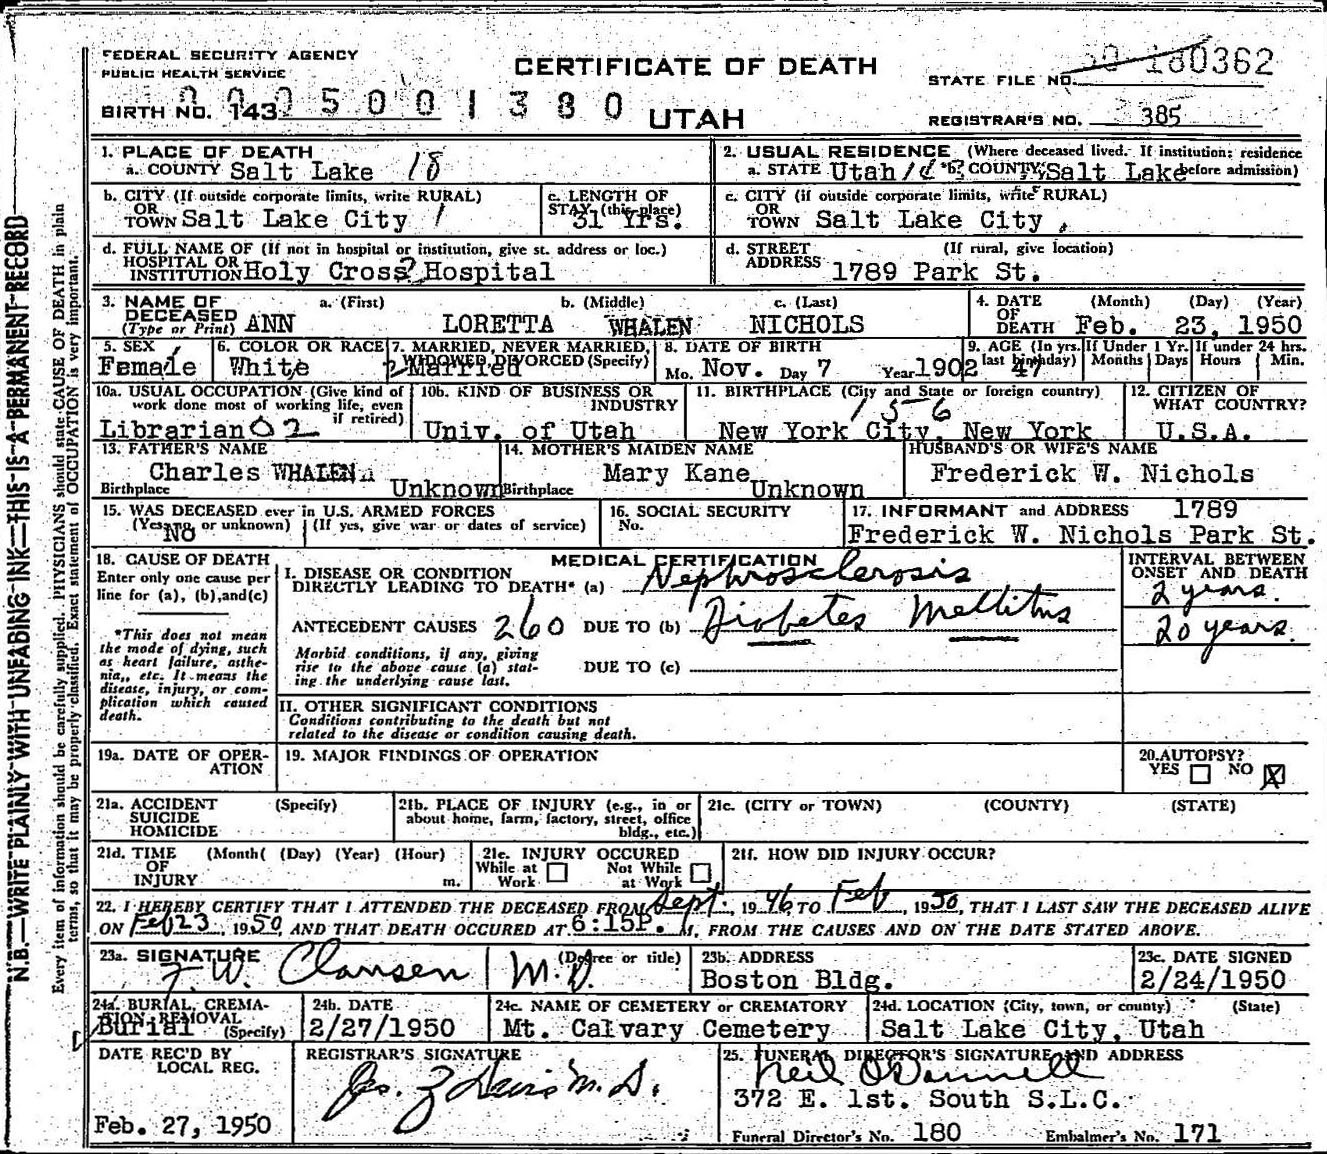 FEDERAL SECURITY AGENCY
PUBLIC HEALTH SERVICE
CERTIFICATE OF DEATH
STATE FILE NO. 50 180362
BIRTH NO. 143 0005001380
UTAH
REGISTRAR'S NO. 385
N.B.—WRITE PLAINLY WITH UNFADING INK—THIS IS A PERMANENT RECORD
Every item of information should be carefully supplied. PHYSICIANS should state CAUSE OF DEATH in plain
terms, so that it may be properly classified. Exact statement of OCCUPATION is very important.
1. PLACE OF DEATH
a. COUNTY Salt Lake 18
2. USUAL RESIDENCE (Where deceased lived. If institution: residence
a. STATE Utah b. COUNTY Salt Lake before admission)
b. CITY (If outside corporate limits, write RURAL)
OR
TOWN Salt Lake City 1
c. LENGTH OF
STAY (this place)
31 Yrs.
c. CITY (if outside corporate limits, write RURAL)
OR
TOWN Salt Lake City
d. FULL NAME OF (If not in hospital or institution, give st. address or loc.)
HOSPITAL OR
INSTITUTION Holy Cross Hospital
d. STREET (If rural, give location)
ADDRESS 1789 Park St.
3. NAME OF a. (First) b. (Middle) c. (Last)
DECEASED
(Type or Print) ANN LORETTA WHALEN NICHOLS
4. DATE (Month) (Day) (Year)
OF
DEATH Feb. 23, 1950
5. SEX
Female
6. COLOR OR RACE
White
7. MARRIED, NEVER MARRIED,
WIDOWED DIVORCED (Specify)
2 Married
8. DATE OF BIRTH
Mo. Nov. Day 7 Year 1902
9. AGE (In yrs.
last birthday)
47
If Under 1 Yr.
Months Days
If under 24 hrs.
Hours Min.
10a. USUAL OCCUPATION (Give kind of
work done most of working life, even
if retired)
Librarian 02
10b. KIND OF BUSINESS OR
INDUSTRY
Univ. of Utah
11. BIRTHPLACE (City and State or foreign country)
156
New York City, New York
12. CITIZEN OF
WHAT COUNTRY?
U.S.A.
13. FATHER'S NAME
Charles WHALEN
Birthplace Unknown
14. MOTHER'S MAIDEN NAME
Mary Kane
Birthplace Unknown
HUSBAND'S OR WIFE'S NAME
Frederick W. Nichols
15. WAS DECEASED ever in U.S. ARMED FORCES
(Yes, no, or unknown) (If yes, give war or dates of service)
No
16. SOCIAL SECURITY
No.
17. INFORMANT and ADDRESS 1789
Frederick W. Nichols Park St.
18. CAUSE OF DEATH
Enter only one cause per
line for (a), (b), and (c)
*This does not mean
the mode of dying, such
as heart failure, asthe-
nia, etc. It means the
disease, injury, or com-
plication which caused
death.
MEDICAL CERTIFICATION
I. DISEASE OR CONDITION
DIRECTLY LEADING TO DEATH* (a) Nephrosclerosis
ANTECEDENT CAUSES 260 DUE TO (b) Diabetes Mellitus
Morbid conditions, if any, giving
rise to the above cause (a) stat-
ing the underlying cause last.
DUE TO (c)
INTERVAL BETWEEN
ONSET AND DEATH
2 years.
20 years.
II. OTHER SIGNIFICANT CONDITIONS
Conditions contributing to the death but not
related to the disease or condition causing death.
19a. DATE OF OPER-
ATION
19. MAJOR FINDINGS OF OPERATION
20. AUTOPSY?
YES NO X
21a. ACCIDENT (Specify)
SUICIDE
HOMICIDE
21b. PLACE OF INJURY (e.g., in or
about home, farm, factory, street, office
bldg., etc.)
21c. (CITY or TOWN) (COUNTY) (STATE)
21d. TIME (Month( (Day) (Year) (Hour)
OF
INJURY m.
21e. INJURY OCCURED
While at Work Not While at Work
21f. HOW DID INJURY OCCUR?
22. I HEREBY CERTIFY THAT I ATTENDED THE DECEASED FROM Sept., 1946 TO Feb, 1950, THAT I LAST SAW THE DECEASED ALIVE
ON Feb 23, 1950, AND THAT DEATH OCCURED AT 6:15P. M, FROM THE CAUSES AND ON THE DATE STATED ABOVE.
23a. SIGNATURE (Degree or title)
F. W. Clausen M.D.
23b. ADDRESS
Boston Bldg.
23c. DATE SIGNED
2/24/1950
24a. BURIAL, CREMA-
TION, REMOVAL
Burial (Specify)
24b. DATE
2/27/1950
24c. NAME OF CEMETERY or CREMATORY
Mt. Calvary Cemetery
24d. LOCATION (City, town, or county) (State)
Salt Lake City, Utah
DATE REC'D BY
LOCAL REG.
Feb. 27, 1950
REGISTRAR'S SIGNATURE
25. FUNERAL DIRECTOR'S SIGNATURE AND ADDRESS
Neil O'Donnell
372 E. 1st. South S.L.C.
Funeral Director's No. 180 Embalmer's No. 171